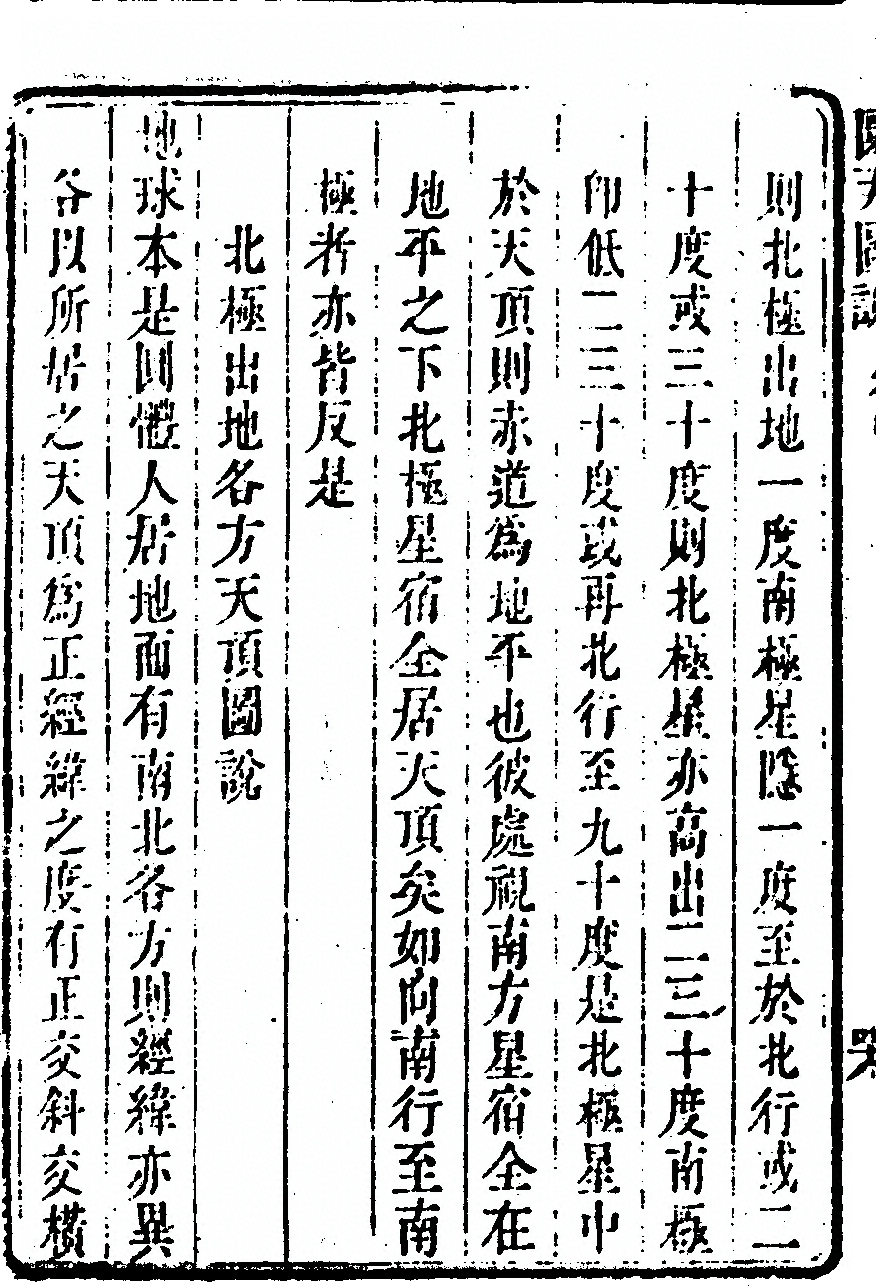 則北極出地一度南極星隱一度至於北行或二
十度或三十度則北極星亦高出二三十度南極
卽低二三十度或再北行至九十度是北極星中
於天頂則赤道爲地平也彼處視南方星宿全在
地平之下北極星宿全居天頂矣如向南行至南
極者亦皆反是
北極出地各方天頂圖說
地球本是圓體人居地面有南北各方則經緯亦異
各以所居之天頂爲正經緯之度有正交斜交橫